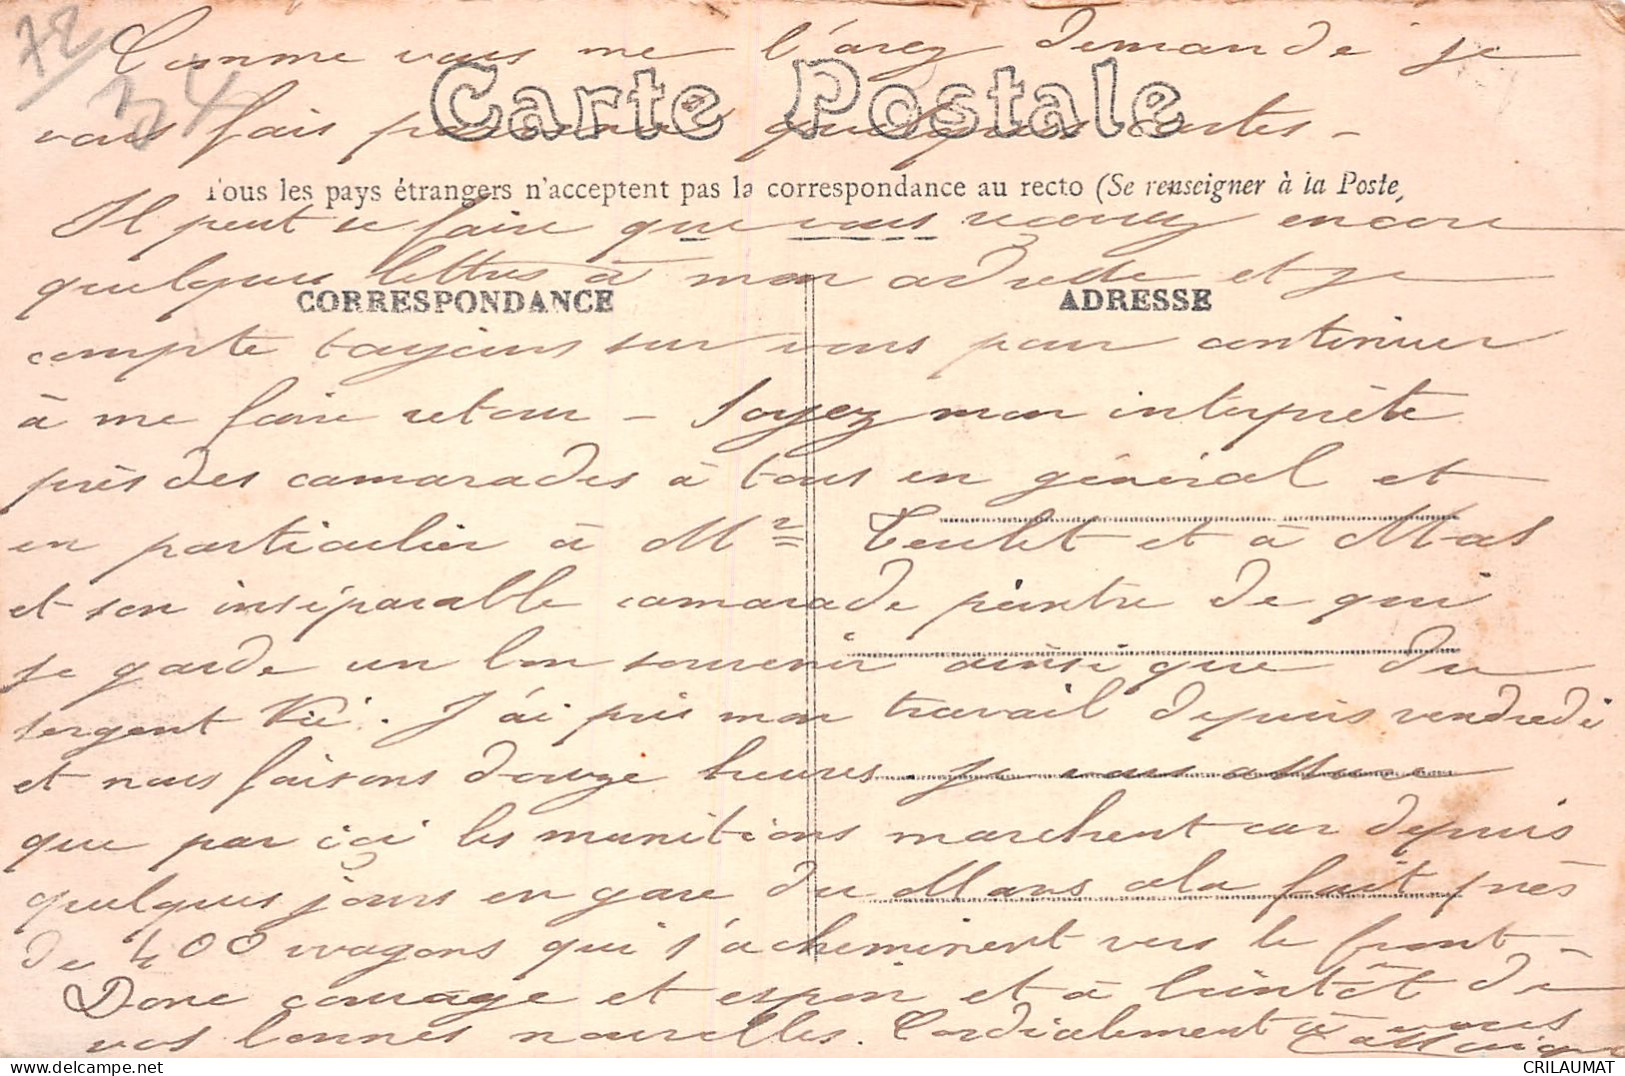 72
34
Comme vous me l'avez demande je
Carte Postale
vous fais parvenir quelques cartes -
Tous les pays étrangers n'acceptent pas la correspondance au recto (Se renseigner à la Poste,
Il peut se faire que vous recevez encore
quelques lettres à mon adresse et je
CORRESPONDANCE ADRESSE
compte toujours sur vous pour continuer
à me faire retour - Soyez mon interprète
près des camarades à tous en général et
en particulier à Mr Teulet et à Mas
et son inséparable camarade peintre de qui
je garde un bon souvenir ainsi que du
sergent Vié. J'ai pris mon travail depuis vendredi
et nous faisons douze heures. je vous assure
que par ici les munitions marchent car depuis
quelques jours en gare du Mans cela fait près
de 400 wagons qui s'acheminent vers le front -
Donc courage et espoir et à bientôt de
vos bonnes nouvelles. Cordialement à vous
CRILAUMAT